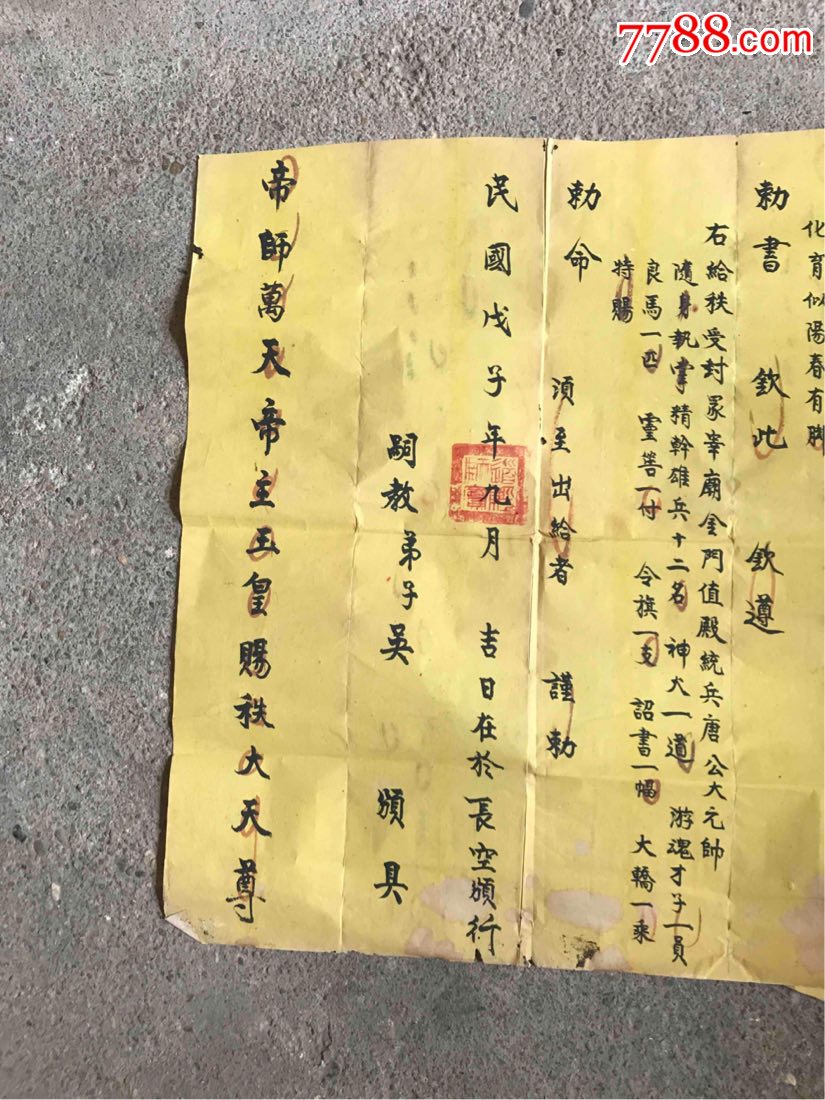 7788.com
化育似陽春有脚
勅書 欽此 欽遵
右給秩受封冡宰廟金門值殿統兵唐公大元帥
隨身執掌精幹雄兵十二名 神犬一道 游魂才子一員
良馬一匹 靈筶一付 令旗一支 詔書一幅 大轎一乘
特賜
勅命
須至出給者 謹勅
民國戊子年九月 吉日在於長空頒行
嗣教弟子吳 頒具
帝師萬天帝主玉皇賜秩大天尊